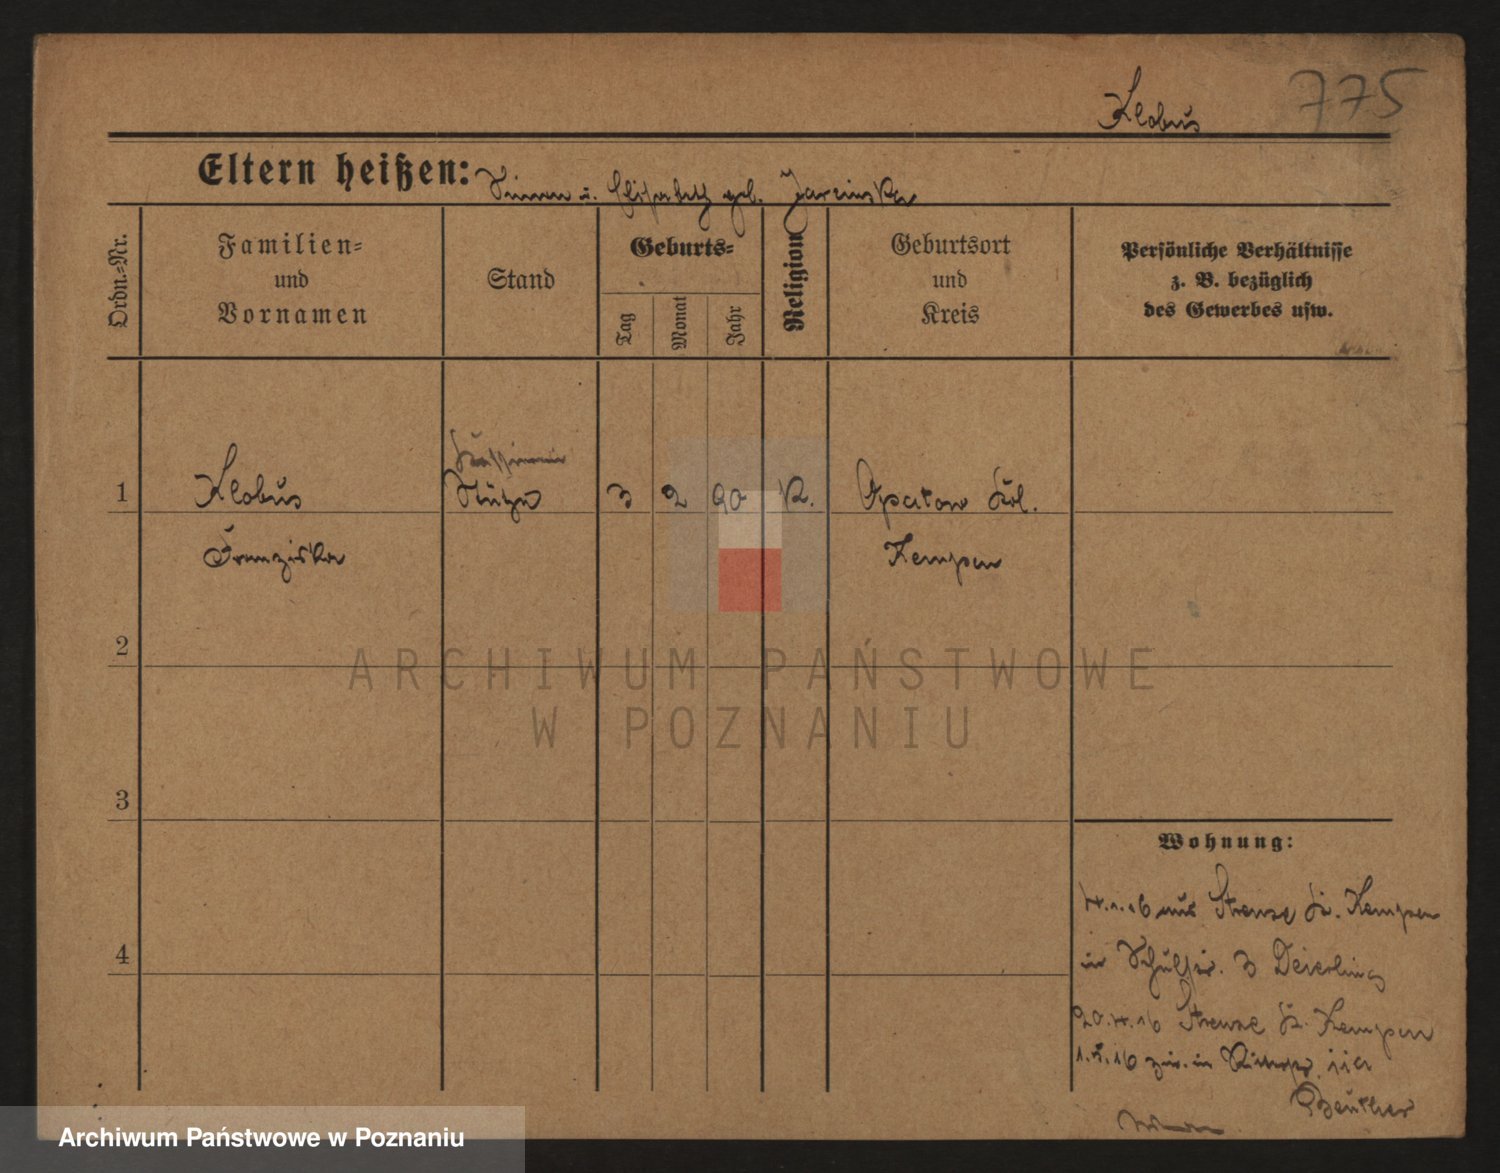 775
Klobus
Eltern heißen: Simon u. Elisabeth geb. Jarcinska
Ordn.=Nr.
Familien=
und
Vornamen
Stand
Geburts=
Tag
Monat
Jahr
Religion
Geburtsort
und
Kreis
Persönliche Verhältnisse
z. B. bezüglich
des Gewerbes usw.
1 Klobus Stütze 3 2 90 K. Opatow Kol.
Franziska Kempen
2
3
4
Wohnung:
4.1.16 aus Strenze Kr. Kempen
in Schulstr. 3 Deierling
20.4.16 Strenze Kr. Kempen
1.5.16 zur. in Ritterstr. 11a
Beutler
ARCHIWUM PAŃSTWOWE
W POZNANIU
Archiwum Państwowe w Poznaniu